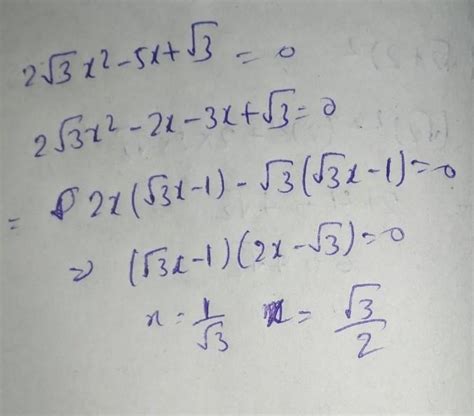 2√3 x² - 5x + √3 = 0
2√3x² - 2x - 3x + √3 = 0
= 2x(√3x-1) - √3(√3x-1) = 0
⇒ (√3x-1)(2x-√3) = 0
x = 1/√3 x = √3/2